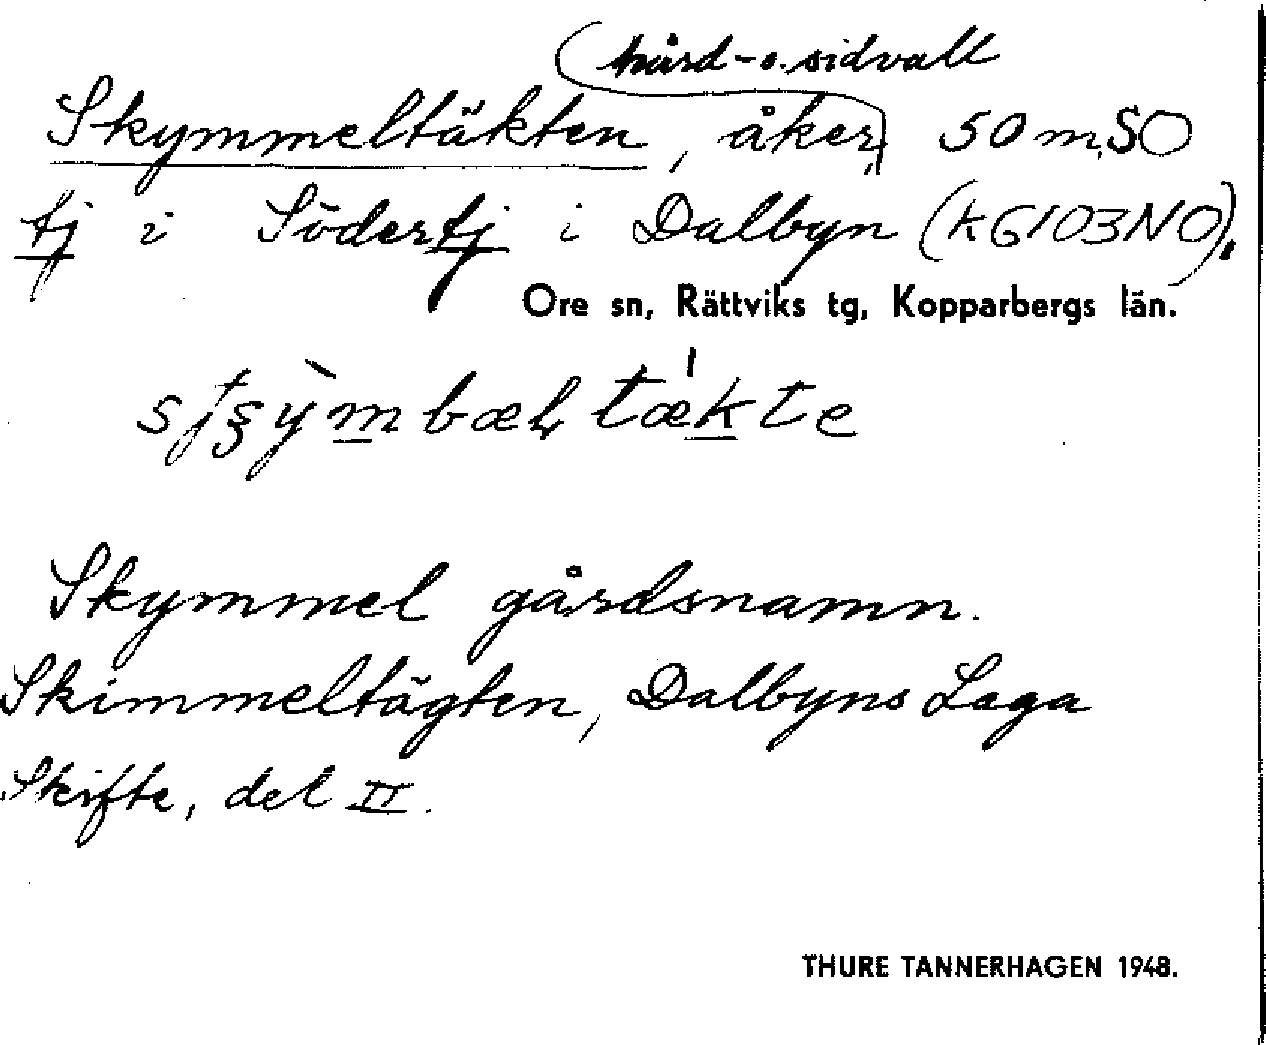 (hård- o. sidvall
Skymmeltäkten, åker, 50 m SO
tj i Södertj i Dalbyn (KG103NO).
Ore sn, Rättviks tg, Kopparbergs län.
Skymmel gårdsnamn.
Skimmeltägten, Dalbyns Laga
Skifte, del II.
THURE TANNERHAGEN 1948.